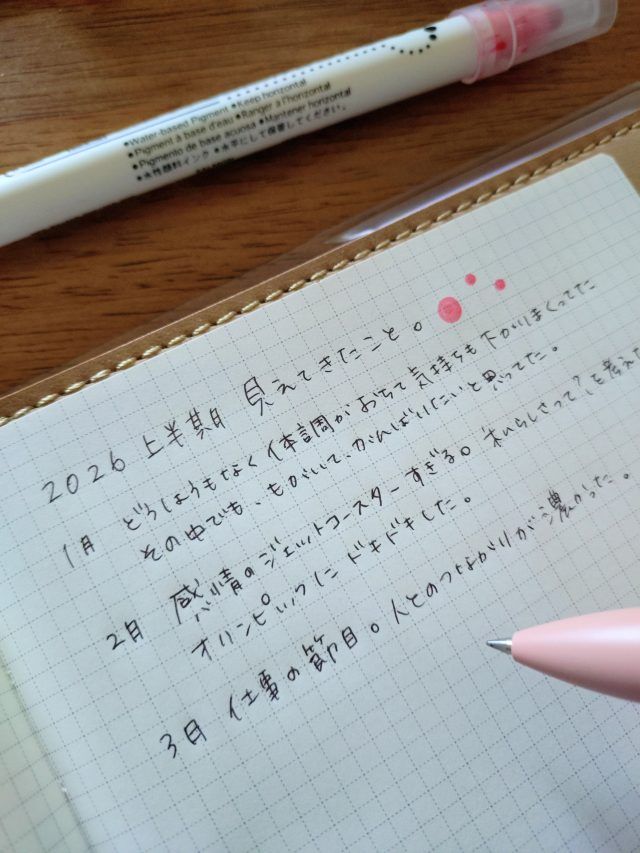 •Water-based Pigment •Keep horizontal
•Pigment à base d'eau •Ranger à l'horizontal
•Pigmento de base acuosa •Mantener horizontal
•水性顔料インク •水平にして保管してください。
2026 上半期 見えてきたこと。
1月 どうしようもなく体調がおちて気持ちも下がりまくってた
その中でも、もがいて、がんばりたいと思ってた。
2月 感情のジェットコースターすぎる。"私らしさって?"を考えた
オリンピックにドキドキした。
3月 仕事の節目。人とのつながりが濃かった。